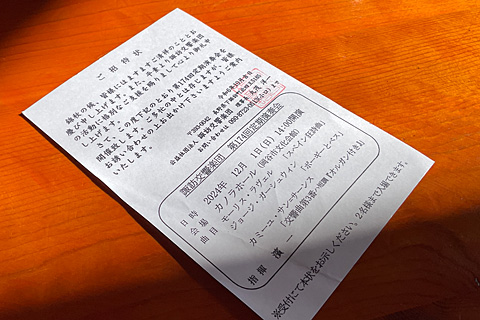 ご招待状
錦秋の候、皆様にはますますご清祥のこととお
慶び申し上げます。また、平素より諏訪交響楽団
の活動に格別なご支援を賜りまして心より御礼申
し上げます。
さて、この度下記のとおり、第174回定期演奏会を
開催致します。ご多忙の中とは存じますが、皆様
お誘い合わせの上お出ましいただきますようご案内
いたします。
公益社団法人 諏訪交響楽団
諏訪交響楽団 第174回定期演奏会
日時 2024年 12月 1日(日) 14:00開演
会場 カノラホール(岡谷市文化会館)
曲目 モーリス・ラヴェル 「スペイン狂詩曲」
ジョージ・ガーシュウィン 「ポーギーとベス」
カミーユ・サン=サーンス 「交響曲第3番ハ短調『オルガン付き』」
指揮 濱 一
※受付にて本状をお示しください。2名様まで入場できます。